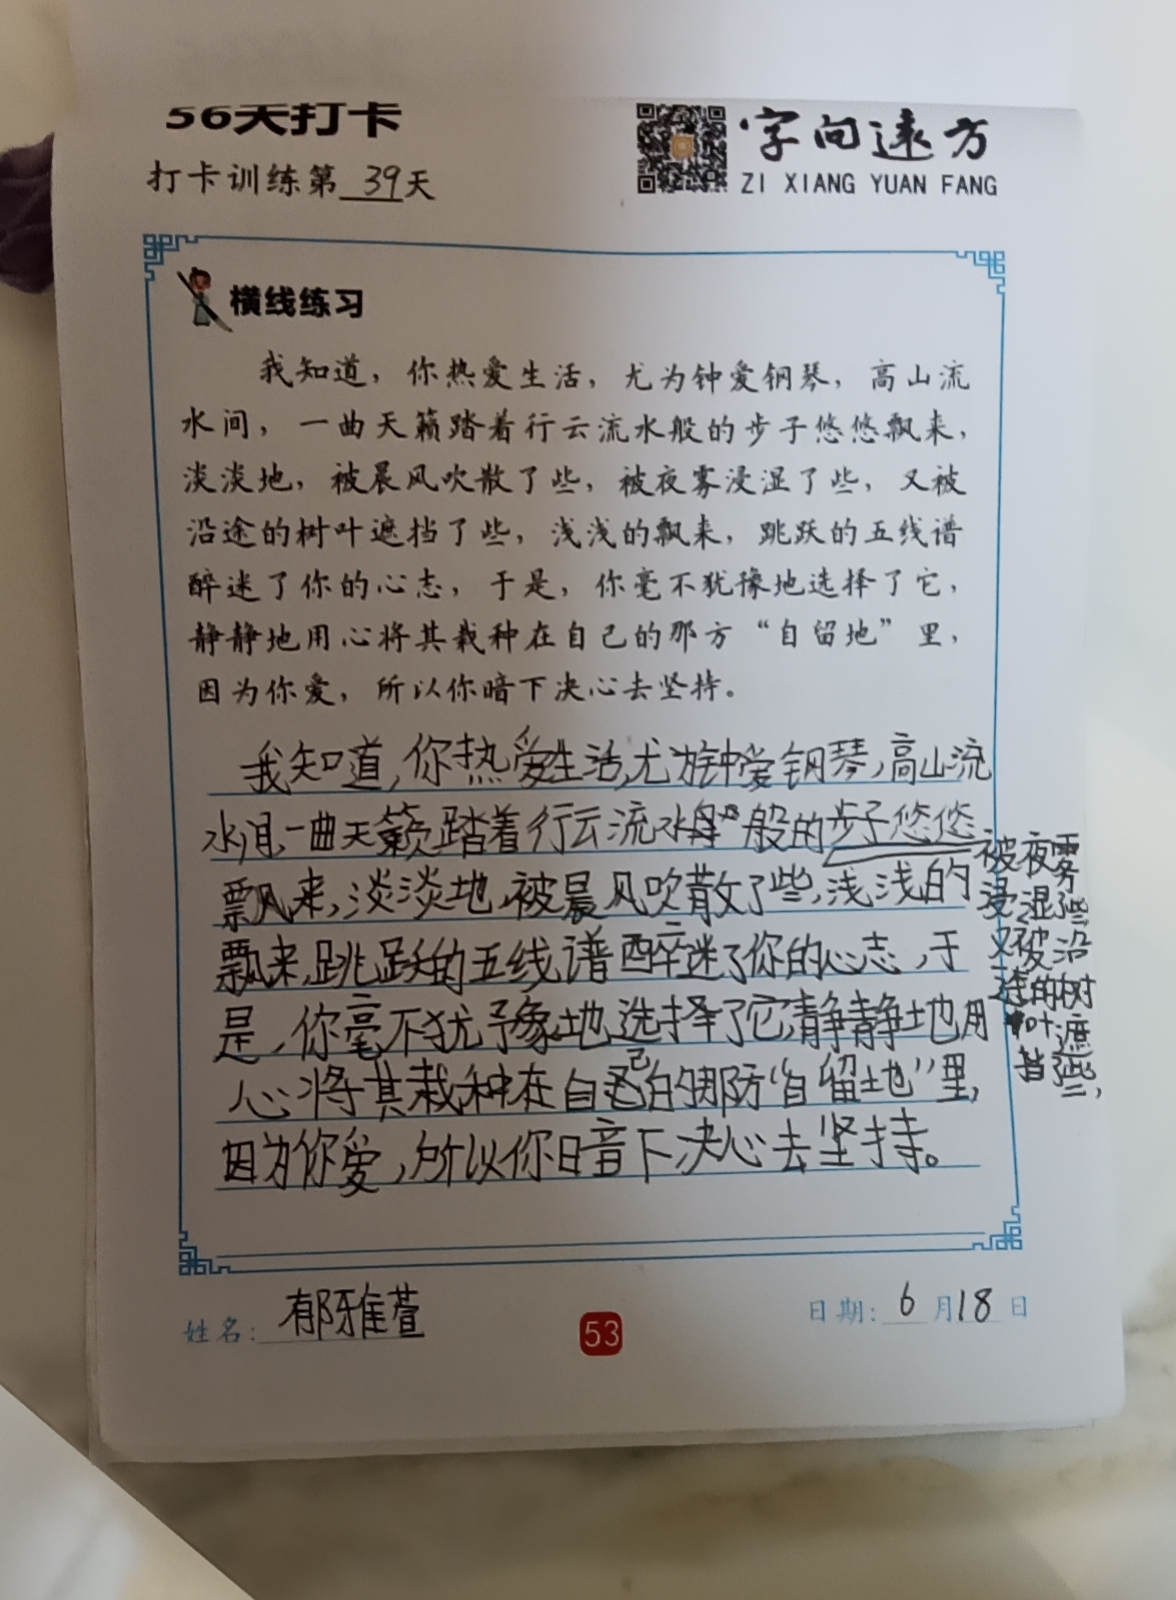 56天打卡
打卡训练第39天
字向远方
ZI XIANG YUAN FANG
横线练习
我知道，你热爱生活，尤为钟爱钢琴，高山流
水间，一曲天籁踏着行云流水般的步子悠悠飘来，
淡淡地，被晨风吹散了些，被夜雾浸湿了些，又被
沿途的树叶遮挡了些，浅浅的飘来，跳跃的五线谱
醉迷了你的心志，于是，你毫不犹豫地选择了它，
静静地用心将其栽种在自己的那方“自留地”里，
因为你爱，所以你暗下决心去坚持。
我知道,你热爱生活,尤为钟爱钢琴,高山流
水间,一曲天籁踏着行云流水般的步子悠悠
飘来,淡淡地,被晨风吹散了些,浅浅的
飘来,跳跃的五线谱醉迷了你的心志,于
是,你毫不犹豫地选择了它,静静地用
心将其栽种在自己的那防“自留地”里,
因为你爱,所以你暗下决心去坚持。
被夜雾
浸湿些,
又被沿
途的树
叶遮
些,
姓名:郁雅萱
53
日期:6月18日